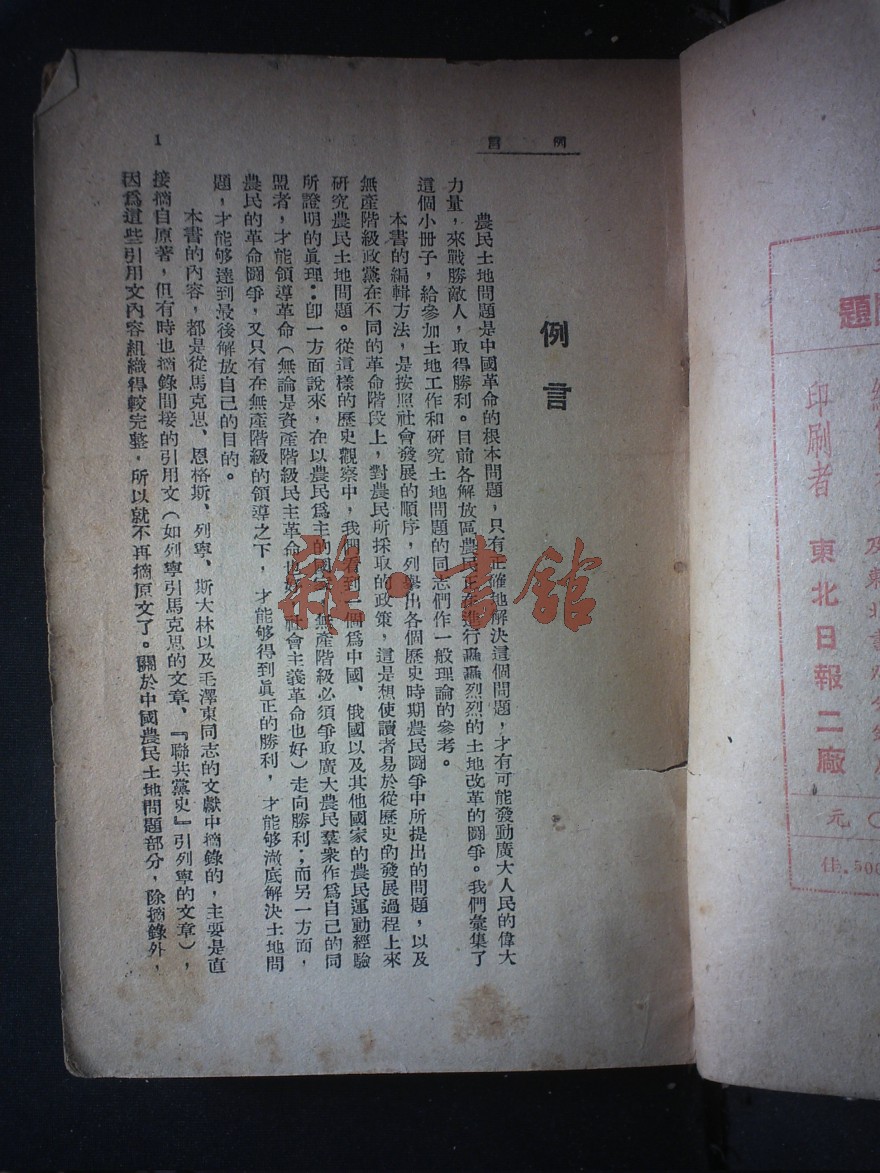 例言
1
例言
農民土地問題是中國革命的根本問題，只有正確地解決這個問題，才有可能發動廣大人民的偉大
力量，來戰勝敵人，取得勝利。目前各解放區農民正在進行轟轟烈烈的土地改革的鬪爭。我們彙集了
這個小冊子，給參加土地工作和研究土地問題的同志們作一般理論的參考。
本書的編輯方法，是按照社會發展的順序，列舉出各個歷史時期農民鬪爭中所提出的問題，以及
無產階級政黨在不同的革命階段上，對農民所採取的政策，這是想使讀者易於從歷史的發展過程上來
研究農民土地問題。從這樣的歷史觀察中，我們看到一個爲中國、俄國以及其他國家的農民運動經驗
所證明的眞理：卽一方面說來，在以農民爲主的國家，無產階級必須爭取廣大農民羣衆作爲自己的同
盟者，才能領導革命（無論是資產階級民主革命也好，社會主義革命也好）走向勝利；而另一方面，
農民的革命鬪爭，又只有在無產階級的領導之下，才能够得到眞正的勝利，才能够澈底解決土地問
題，才能够達到最後解放自己的目的。
本書的內容，都是從馬克思、恩格斯、列寧、斯大林以及毛澤東同志的文獻中摘錄的，主要是直
接摘自原著，但有時也摘錄間接的引用文（如列寧引馬克思的文章、『聯共黨史』引列寧的文章），
因爲這些引用文內容組織得較完整，所以就不再摘原文了。關於中國農民土地問題部分，除摘錄外，
雜·書館
題
印刷者 東北日報二廠
元
佳.500